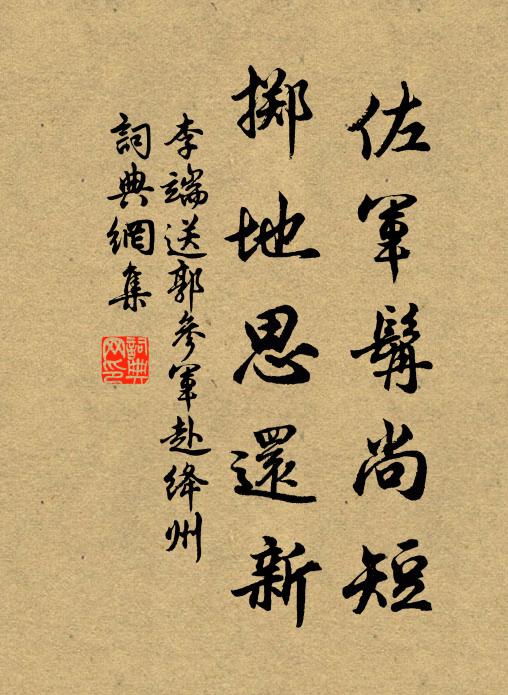 佐軍髯尚短
掷地思還新
李端送郭參軍赴绛州
詞典網集
詞典网印